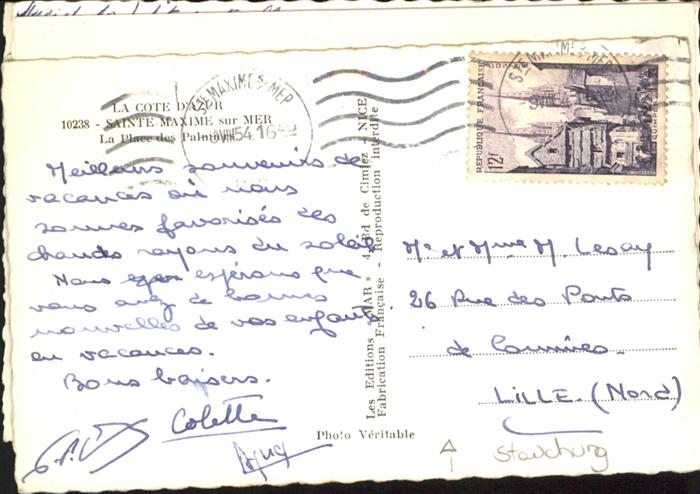 LA COTE D'AZUR
10238 - SAINTE MAXIME sur MER
La Place des Palmiers
Meilleurs souvenirs de
vacances où nous
sommes favorisés des
chauds rayons du soleil
Nous espérons que
vous avez de bonnes
nouvelles de vos enfants
en vacances.
Bons baisers.
Colette
Les Editions "MAR" Bd de Cimiez - NICE
Fabrication Française - Reproduction interdite
Photo Véritable
STE MAXIME S MER
54 16
STE MAXIME S MER
REPUBLIQUE FRANÇAISE
POSTES
12F
QUIMPER
Mr et Mme M. Lesay
26 Rue des Ponts
de Comines
LILLE. (Nord)